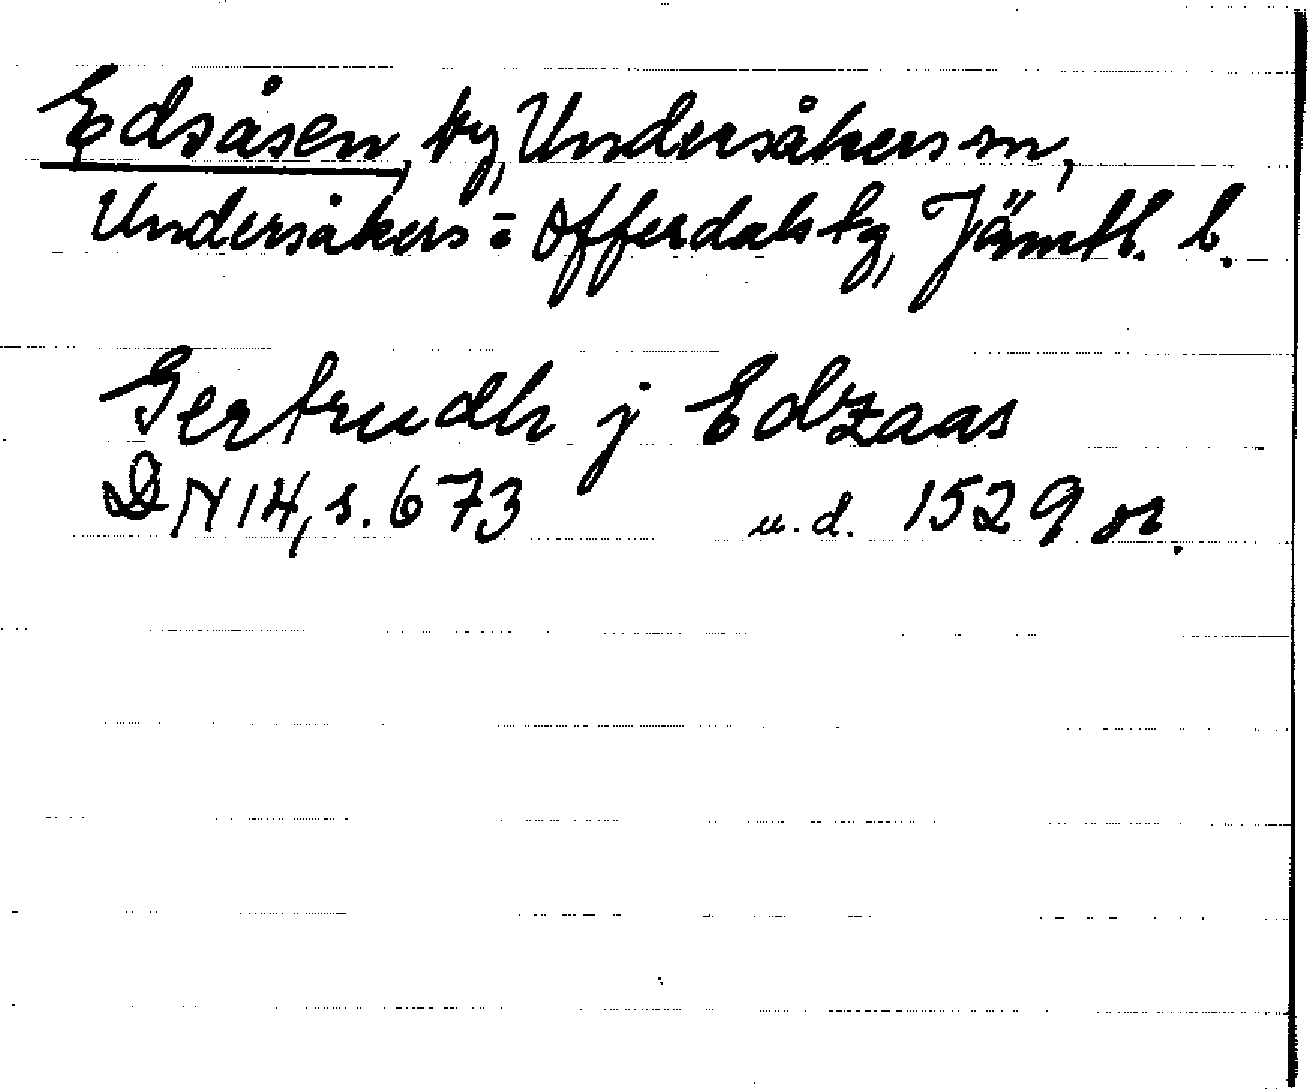 Edsåsen, by, Undersåkers sn,
Undersåkers = Offerdals tg, Jämtl. l.
Gertrudh j Edzaas
DN 14, s. 673 u.d. 1529 or.